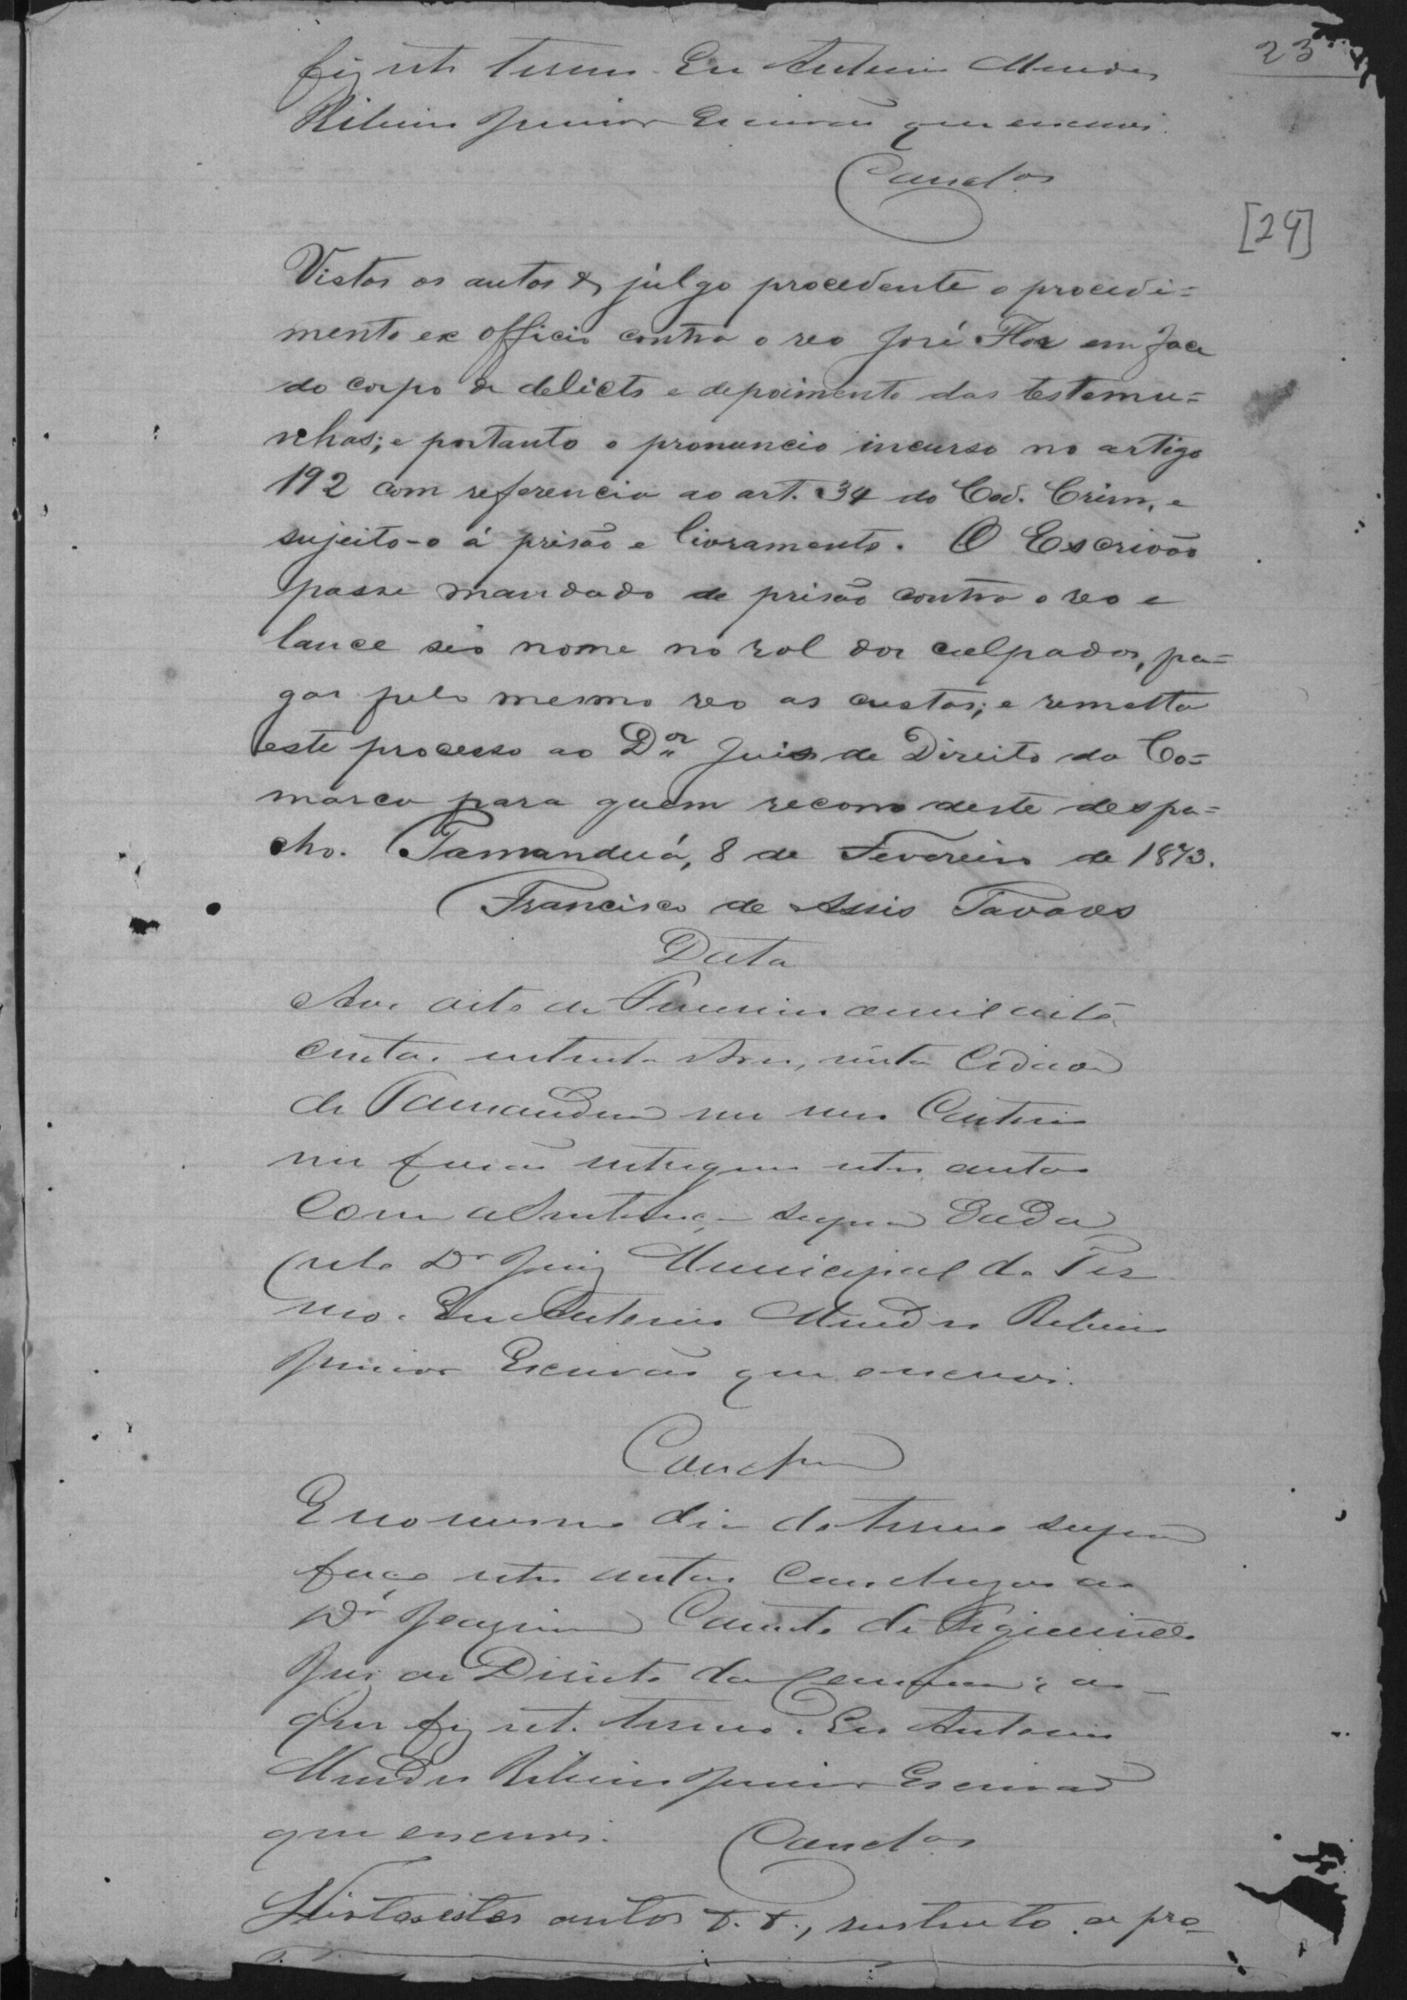 23
fiz este termo. Eu Antonio Mendes
Ribeiro Junior Escrivão que escrevi.
Conclos
[29]
Vistos os autos &, júlgo procedente o procedi=
mento ex officio contra o reo José Flor em face
do corpo de delicto e depoimento das testemu=
nhas; e portanto o pronuncio incurso no artigo
192 com referencia ao art. 34 do Cod. Crim, e
sujeito-o á prisão e livramento. O Escrivão
passe mandado de prisão contra o reo e
lance seo nome no rol dos culpados, pa=
gas pelo mesmo reo as custas; e remetta
este processo ao Dor Juis de Direito da Co=
marca para quem recorro deste despa=
cho. Tamanduá, 8 de Fevereiro de 1873.
Francisco de Assis Tavares
Data
Aos oito de Fevereiro de mil oito
centos setenta e tres, nesta Cidade
de Tamanduá em meu Cartorio
me forão entregues estes autos
Com a Sentença supra dada
pelo Dr Juiz Municipal do Ter
mo. Eu Antonio Mendes Ribeiro
Junior Escrivão que escrevi.
Conclzam
E no mesmo dia do termo supra
faço estes autos Conclusos ao
Dr Joaquim Caetano de Figueiredo
Juiz de Direito da Comarca; do
que fiz este termo. Eu Antonio
Mendes Ribeiro Junior Escrivão
que escrevi. Conclos
Vistos estes autos &. &., sustento a pro-